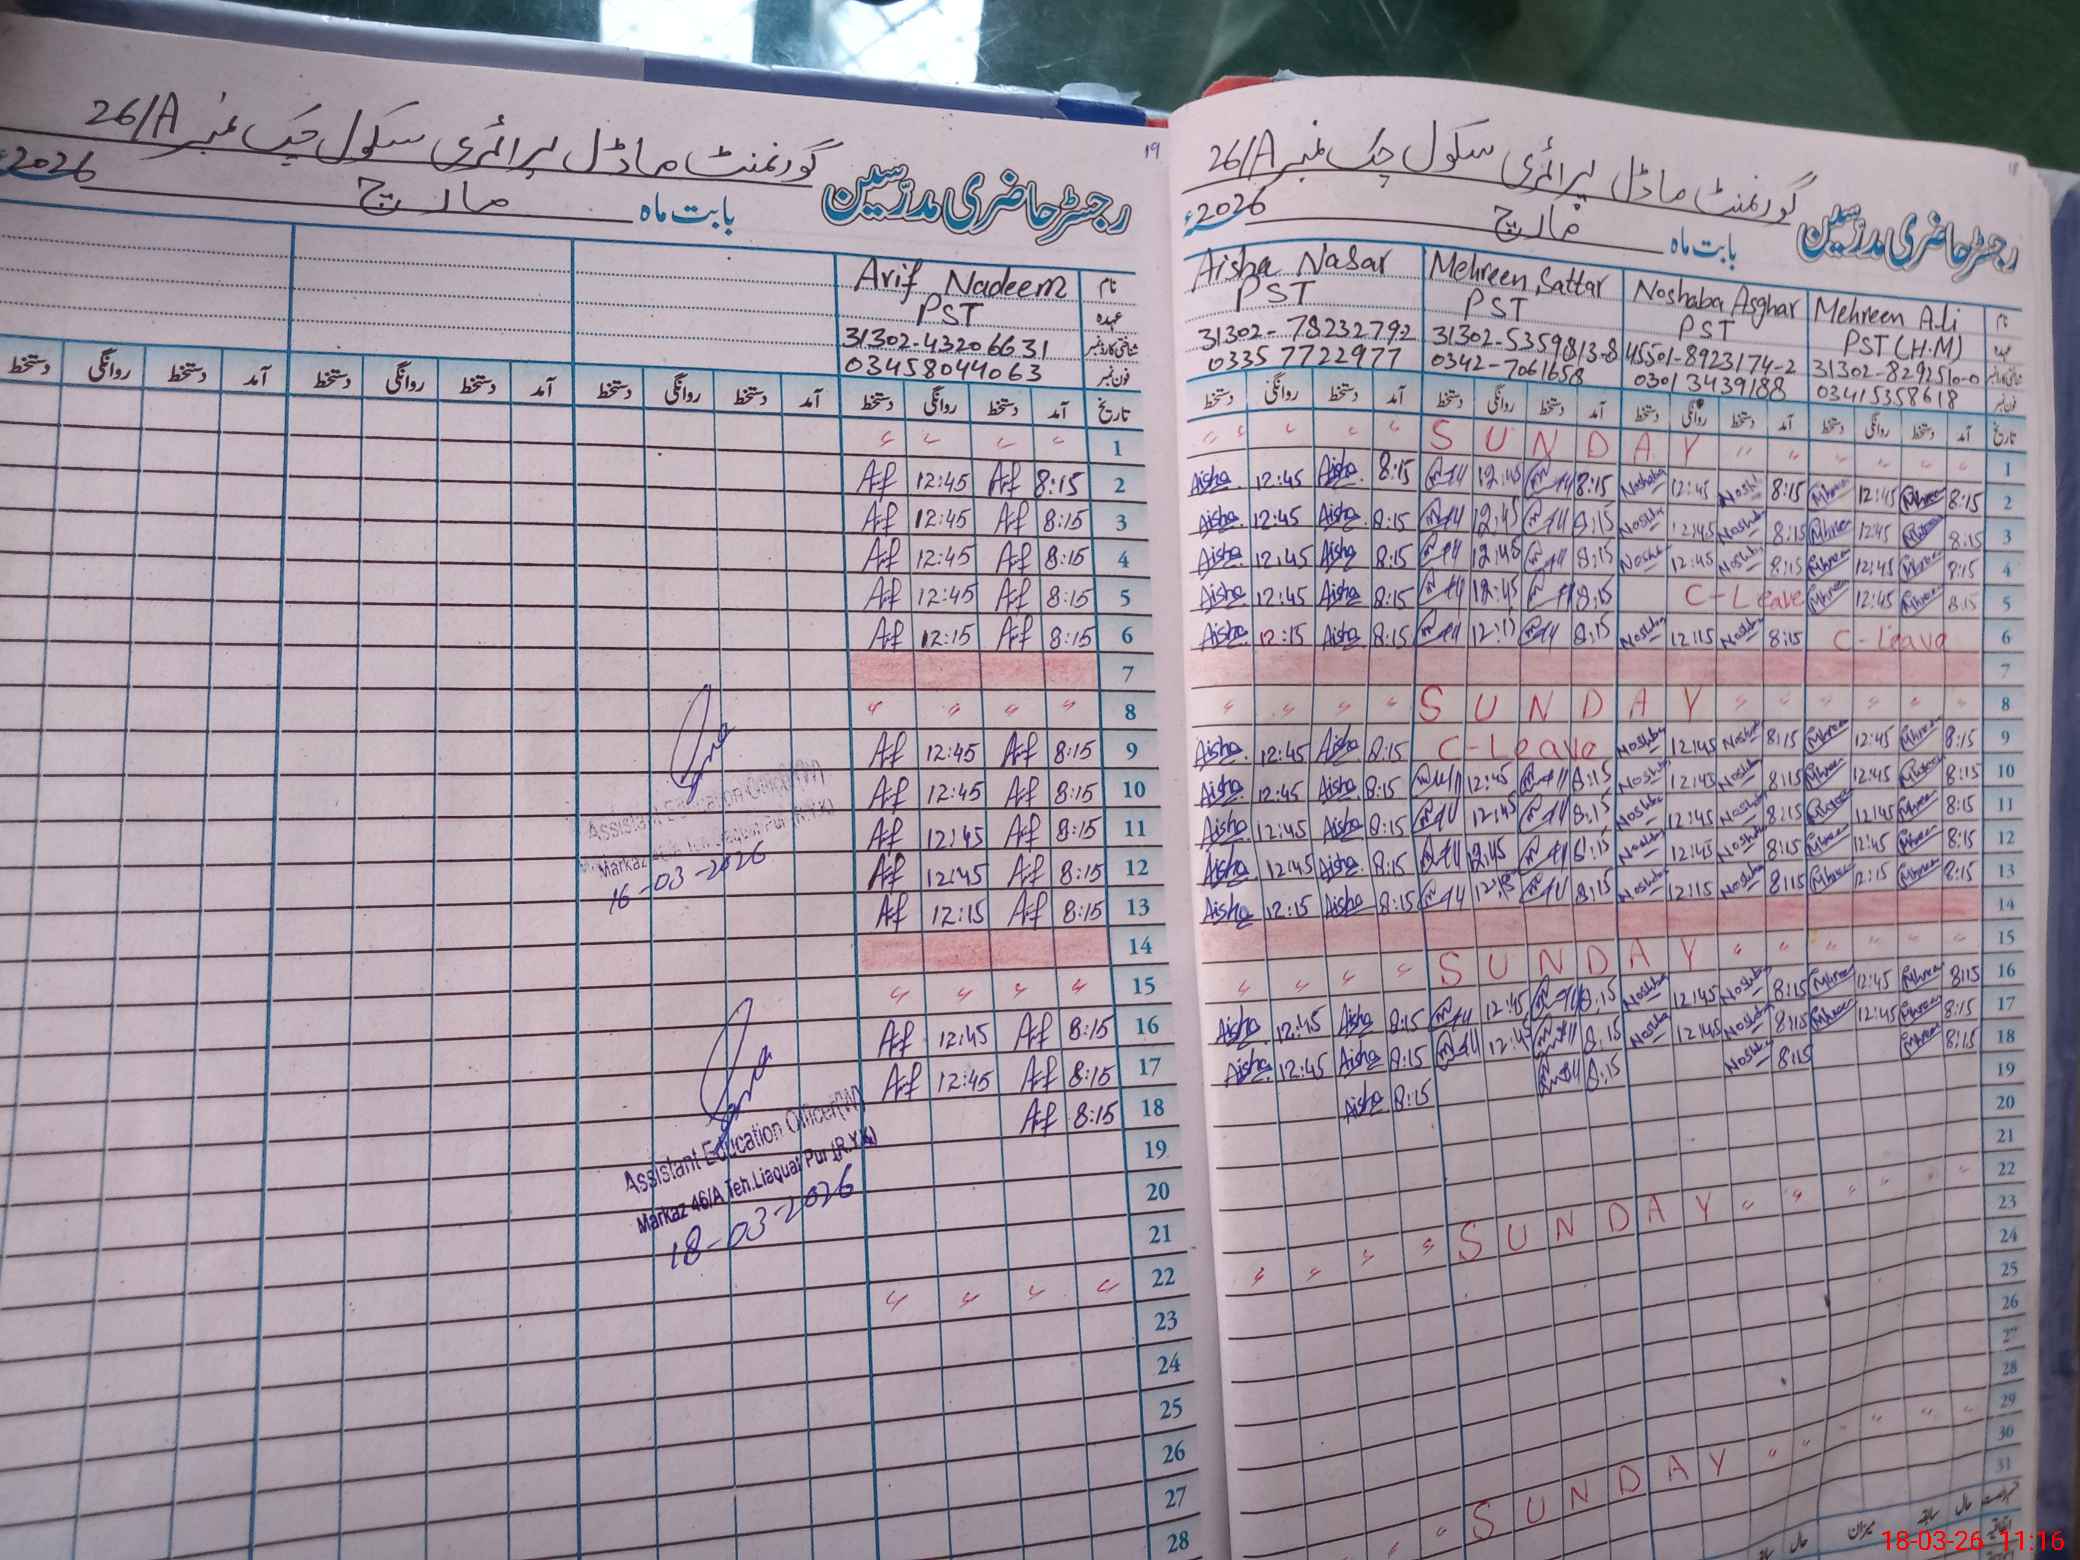 26/A گورنمنٹ ماڈل پرائمری سکول چک نمبر
رجسٹر حاضری مدرسین بابت ماہ مارچ 2026ء
Arif Nadeem نام
PST عہدہ
31302-43206631 شناختی کارڈ نمبر
03458044063 فون نمبر
دستخط روانگی دستخط آمد دستخط روانگی دستخط آمد دستخط روانگی دستخط آمد دستخط روانگی دستخط آمد تاریخ
〃 〃 〃 〃 1
Arif 12:45 Arif 8:15 2
Arif 12:45 Arif 8:15 3
Arif 12:45 Arif 8:15 4
Arif 12:45 Arif 8:15 5
Arif 12:15 Arif 8:15 6
7
〃 〃 〃 〃 8
Arif 12:45 Arif 8:15 9
Arif 12:45 Arif 8:15 10
Arif 12:45 Arif 8:15 11
Arif 12:45 Arif 8:15 12
Arif 12:15 Arif 8:15 13
14
〃 〃 〃 〃 15
Arif 12:45 Arif 8:15 16
Arif 12:45 Arif 8:15 17
Arif 8:15 18
19
20
21
〃 〃 〃 〃 22
23
24
25
26
27
28
Assistant Education Officer(W)
Markaz
16-03-2026
Assistant Education Officer(W)
Markaz 46/A Teh.Liaquat Pur (R.Y.K)
18-03-2026
19
18
26/A گورنمنٹ ماڈل پرائمری سکول چک نمبر
رجسٹر حاضری مدرسین بابت ماہ مارچ 2026ء
Aisha Nasar Mehreen Sattar Noshaba Asghar Mehreen Ali نام
PST PST PST PST (H.M) عہدہ
31302-78232792 31302-5359813-8 45501-8923174-2 31302-8292510-0
0335 7722977 0342-7061658 03013439188 03415358618 فون نمبر
دستخط روانگی دستخط آمد دستخط روانگی دستخط آمد دستخط روانگی دستخط آمد دستخط روانگی دستخط آمد تاریخ
〃 〃 〃 〃 SUNDAY 〃 〃 〃 〃 〃 〃 1
Aisha 12:45 Aisha 8:15 12:45 8:15 Noshaba 12:45 Nosh 8:15 Mhreen 12:45 Mhreen 8:15 2
Aisha 12:45 Aisha 8:15 12:45 8:15 Noshba 12:45 Noshaba 8:15 Mhreen 12:45 Mhreen 8:15 3
Aisha 12:45 Aisha 8:15 12:45 8:15 Nosha 12:45 Noshaba 8:15 Mhreen 12:45 Mhreen 8:15 4
Aisha 12:45 Aisha 8:15 12:45 8:15 C-Leave Mhreen 12:45 Mhreen 8:15 5
Aisha 12:15 Aisha 8:15 12:15 8:15 Noshba 12:15 Noshba 8:15 C-Leave 6
7
〃 〃 〃 〃 SUNDAY 〃 〃 〃 〃 〃 〃 8
Aisha 12:45 Aisha 8:15 C-Leave Noshba 12:45 Noshba 8:15 Mhreen 12:45 Mhreen 8:15 9
Aisha 12:45 Aisha 8:15 12:45 8:15 Noshba 12:45 Noshba 8:15 Mhreen 12:45 Mhreen 8:15 10
Aisha 12:45 Aisha 8:15 12:45 8:15 Noshba 12:45 Noshba 8:15 Mhreen 12:45 Mhreen 8:15 11
Aisha 12:45 Aisha 8:15 12:45 8:15 Noshba 12:45 Noshba 8:15 Mhreen 12:45 Mhreen 8:15 12
Aisha 12:15 Aisha 8:15 12:15 8:15 Noshba 12:15 Noshba 8:15 Mhreen 12:15 Mhreen 8:15 13
14
〃 〃 〃 〃 SUNDAY 〃 〃 〃 〃 〃 〃 15
Aisha 12:45 Aisha 8:15 12:45 8:15 Noshba 12:45 Noshba 8:15 Mhreen 12:45 Mhreen 8:15 16
Aisha 12:45 Aisha 8:15 12:45 8:15 Noshba 12:45 Noshba 8:15 Mhreen 12:45 Mhreen 8:15 17
Aisha 8:15 8:15 Noshba 8:15 Mhreen 8:15 18
19
20
21
〃 〃 〃 〃 SUNDAY 〃 〃 〃 〃 〃 〃 22
23
24
25
26
27
28
〃 〃 SUNDAY 〃 〃 〃 〃 〃 〃 29
30
31
میزان سابقہ حال
18-03-26 11:16